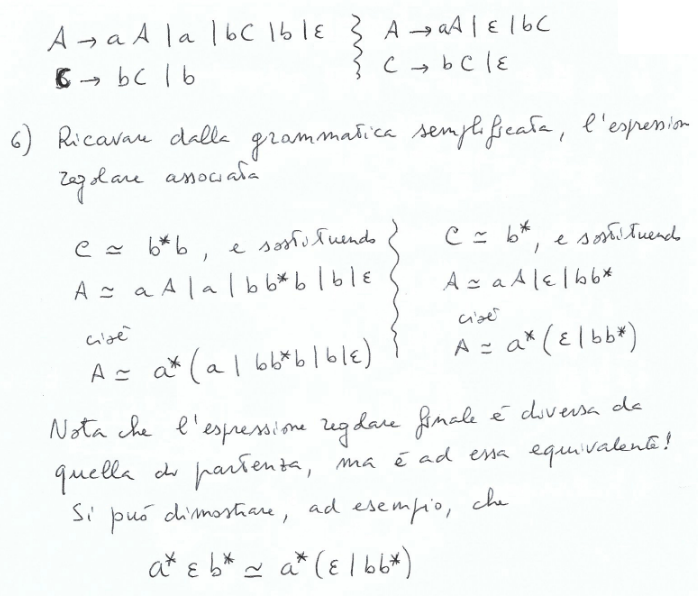 A → aA | a | bC | b | ε
C → bC | b
A → aA | ε | bC
C → bC | ε
6) Ricavare dalla grammatica semplificata, l'espression
regolare associata
C ≃ b*b, e sostituendo
A ≃ aA | a | bb*b | b | ε
cioè
A ≃ a*(a | bb*b | b | ε)
C ≃ b*, e sostituendo
A ≃ aA | ε | bb*
cioè
A ≃ a*(ε | bb*)
Nota che l'espressione regolare finale è diversa da
quella di partenza, ma è ad essa equivalente!
Si può dimostrare, ad esempio, che
a* ε b* ≃ a*(ε | bb*)